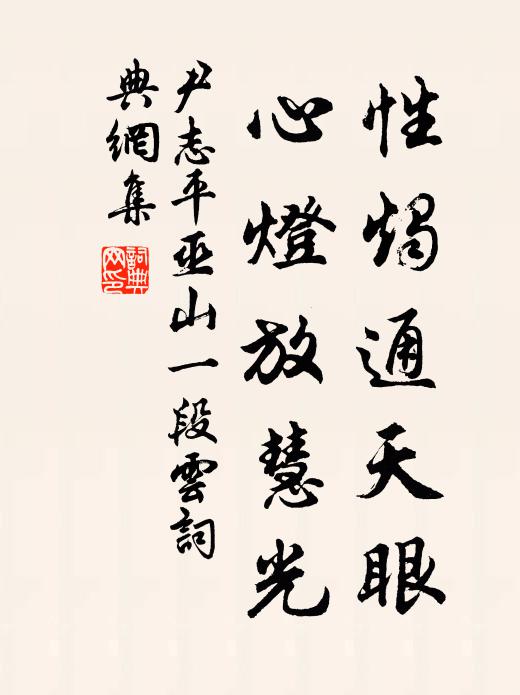 性燭通天眼
心燈放慧光
尹志平巫山一段雲詞
典網集
詞典
网印